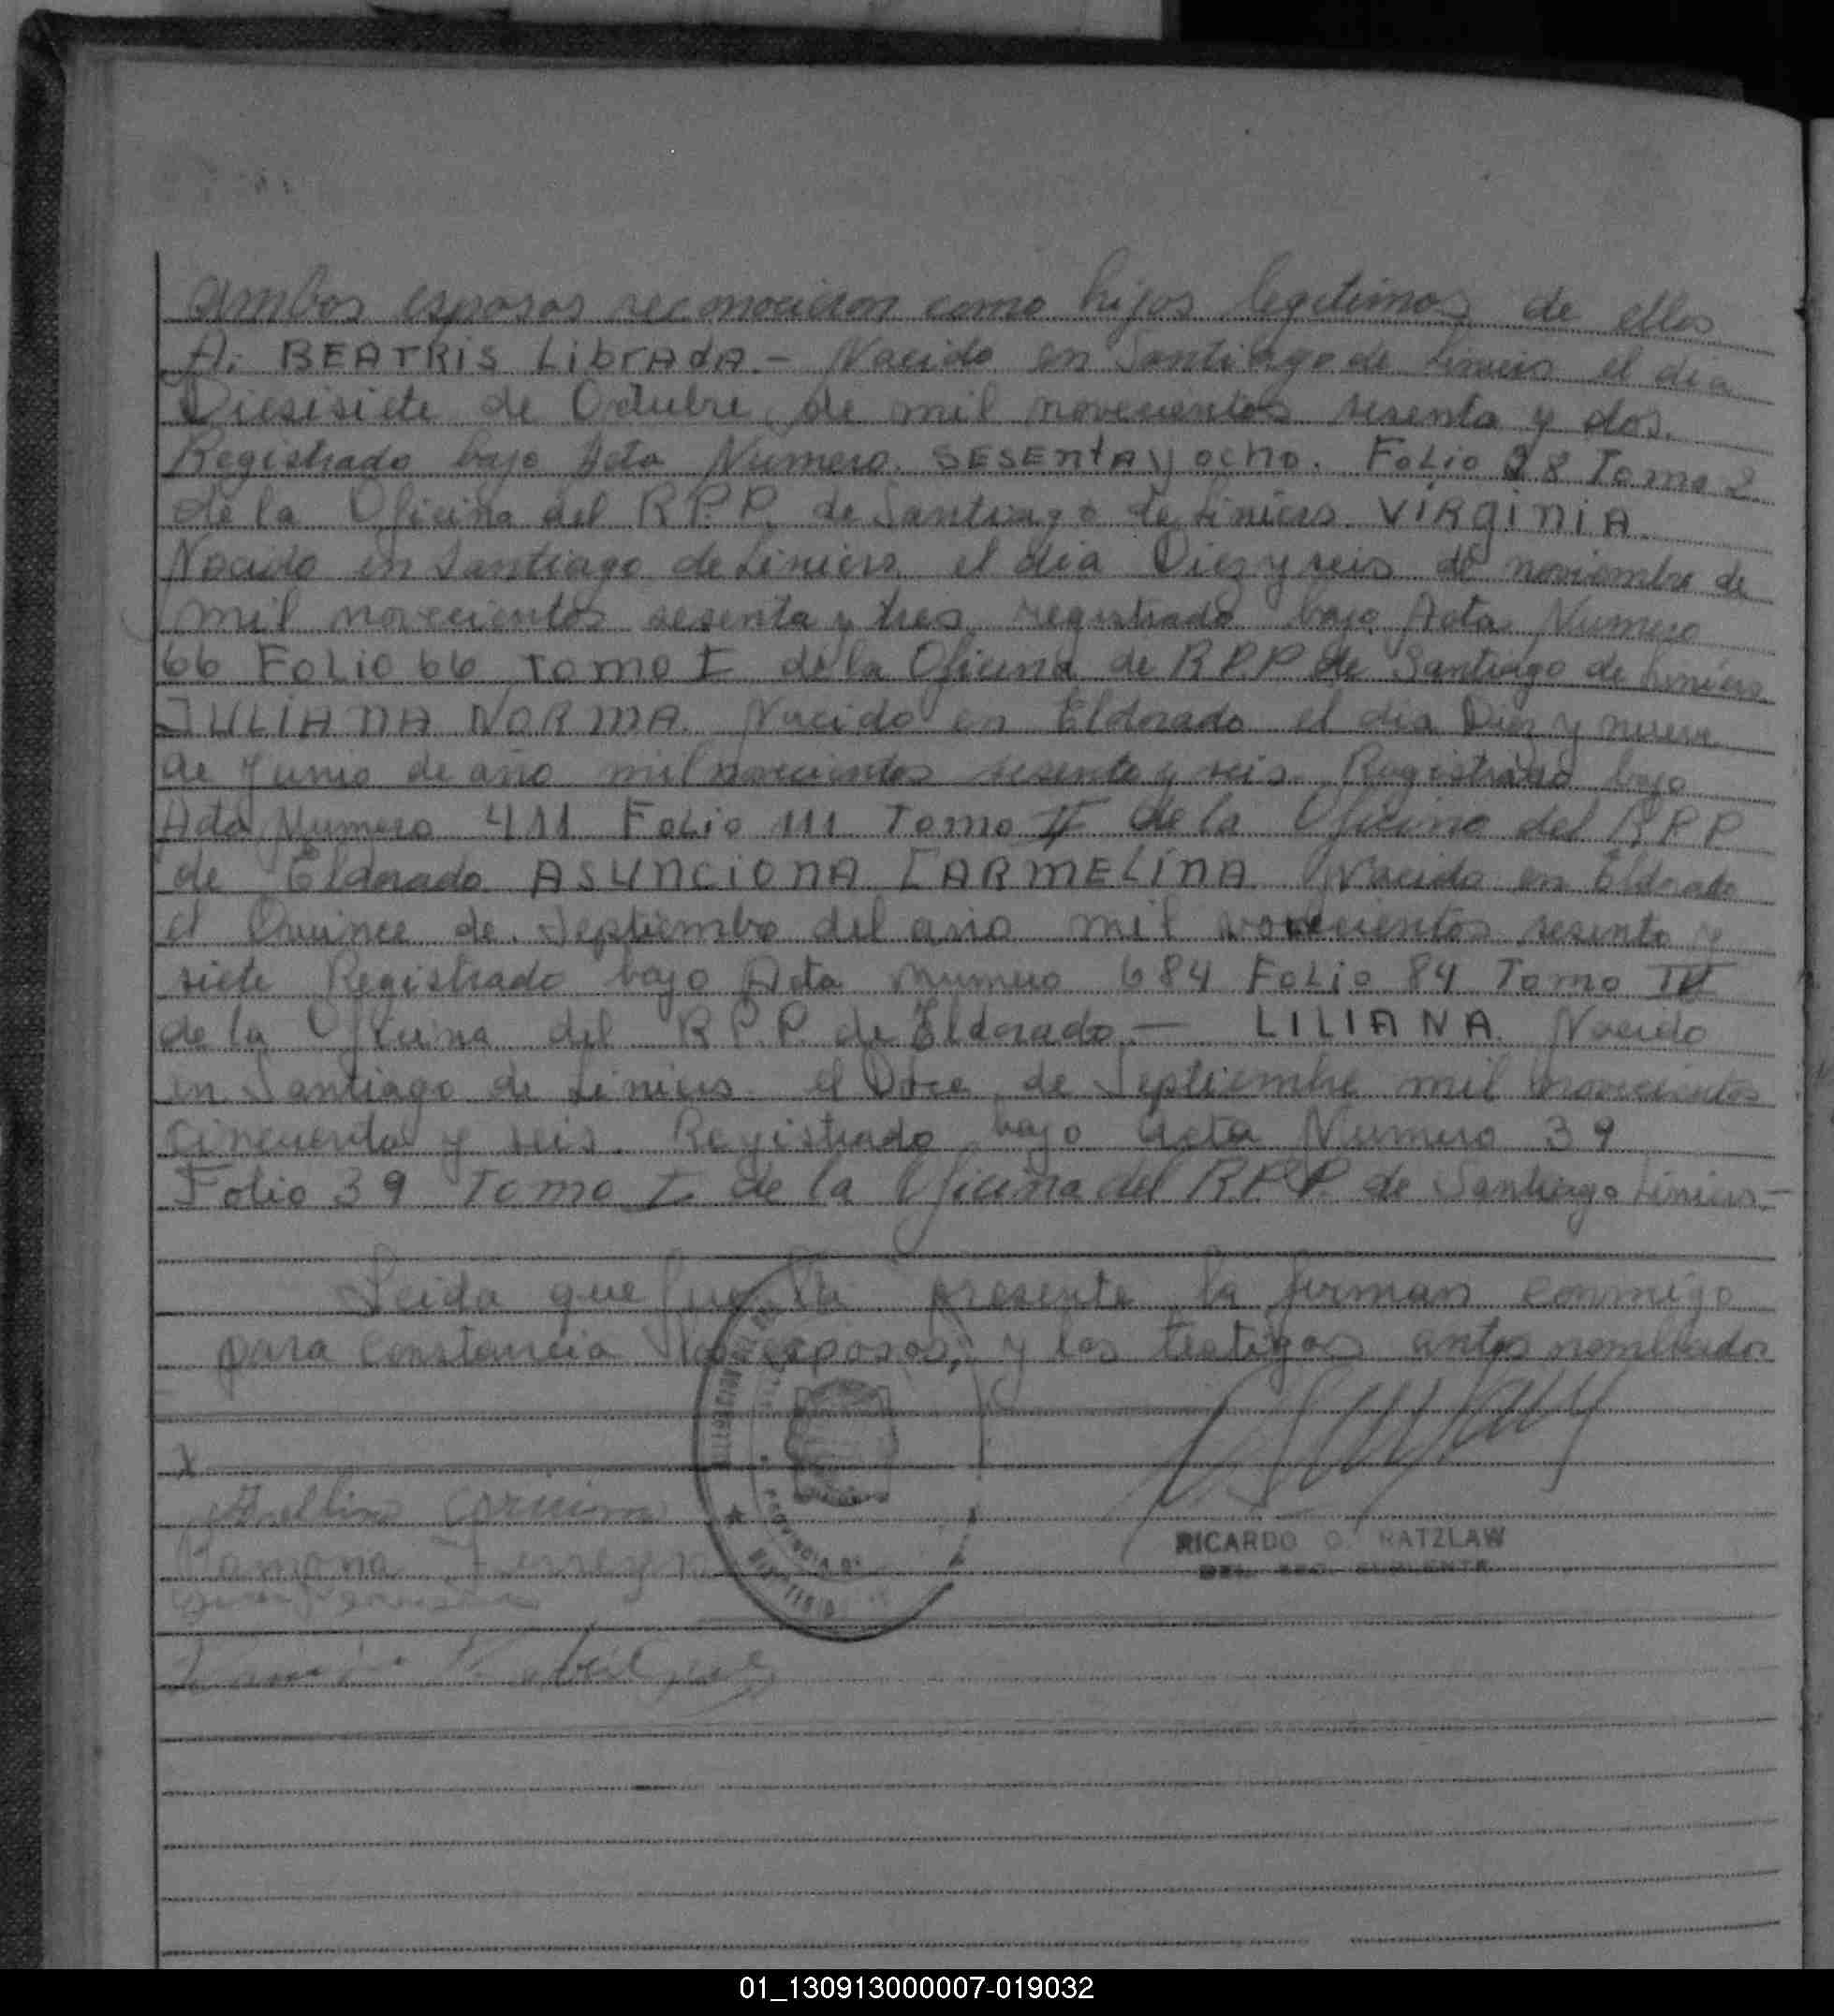 Ambos esposos reconocieron como hijos legitimos de ellos
A. BEATRIS LibrAdA.- Nacido en Santiago de Liniers el dia
Diesisiete de Octubre de mil novecientos sesenta y dos.
Registrado bajo Acta Numero SESEntA y ocho. Folio 28 Tomo 2
de la Oficina del R.P.P. de Santiago de Liniers VIRginiA
Nacido en Santiago de Liniers el dia Diez y seis de noviembre de
mil novecientos sesenta y tres registrado bajo Acta Numero
66 Folio 66 Tomo I de la Oficina de R.P.P de Santiago de Liniers
JULIANA NORMA. Nacido en Eldorado el dia Diez y nueve
de Junio de año mil novecientos sesenta y seis. Registrado bajo
Acta Numero 411 Folio 111 Tomo II de la Oficina del R.P.P
de Eldorado ASUNCIONA CARMELINA Nacido en Eldorado
el Quince de Septiembre del año mil novecientos sesenta y
siete Registrado bajo Acta numero 684 Folio 84 Tomo IV
de la Oficina del R.P.P. de Eldorado.- LILIANA. Nacido
en Santiago de Liniers el Doce de Septiembre mil novecientos
cincuenta y seis. Registrado bajo acta Numero 39
Folio 39 Tomo I de la Oficina del R.P.P. de Santiago Liniers-
Leida que fue la presente la firman conmigo
para constancia los esposos, y los testigos antes nombrados
x
Ramona Ferreyra
PROVINCIA DE
MISIONES
RICARDO O. RATZLAW
DEL. SUPLENTE
01_130913000007-019032